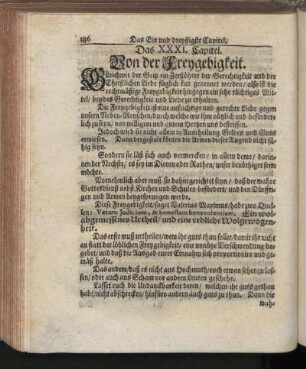 186 Das Ein und dreyssigste Capitel.
Das XXXI. Capitel.
Von der Freygebigkeit.
Gleichwie der Geitz ein Zerstöhrer der Gerechtigkeit und der
Christlichen Liebe füglich kan genennet werden / also ist die
rechtmässige Freygebigkeit hingegen ein sehr tüchtiges Mit-
tel / beydes Gerechtigkeit und Liebe zu erhalten.
Die Freygebigkeit ist ein aufrichtige und gerechte Liebe gegen
unsern Neben-Menschen / durch welche wir ihm nützlich und beförder-
lich zu seyn / von willigem und gutem Hertzen uns befleissen.
Jedoch wird sie nicht allein in Austheilung Geldes und Guts
erwiesen. Dann dergestalt könten die Armen dieser Tugend nicht fä-
hig seyn.
Sondern sie läst sich auch vermercken / in allem deme / darin-
nen der Nechste / es sey im Dienen oder Rathen / unser benöthiget seyn
möchte.
Vornehmlich aber muß sie dahin gerichtet seyn / daß der wahre
Gottesdienst nebst Kirchen und Schulen befördert / und den Dürffti-
gen und Armen beygesprungen werde.
Diese Freygebigkeit / saget Valerius Maximus, habe zwo Quel-
len: Verum Judicium, & honestam benevolentiam. Ein wol-
abgemessenes Urtheil / und eine redliche Wolgewogen-
heit.
Das erste muß urtheilen / wem ihr guts thun sollet / damit ihr nicht
an statt der löblichen Freygebigkeit / eine unnütze Verschwendung be-
gehet / und daß die Ausgab eurer Einnahm sich proportionire und ge-
mäß halte.
Das andere / daß es nicht aus Hochmuth / noch etwan sehen zu las-
sen / oder auch aus Scham vor andern Leuten geschehe.
Lasset euch die Undanckbarkeit deren / welchen ihr guts gethan
habt / nicht abschrecken / hinführo andern auch guts zu thun. Dann die